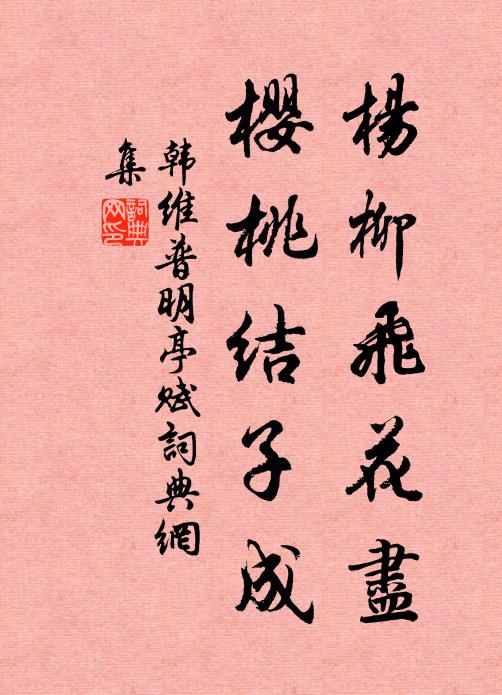 楊柳飛花盡
櫻桃結子成
韩維普明亭赋詞典網
集
詞典
网印